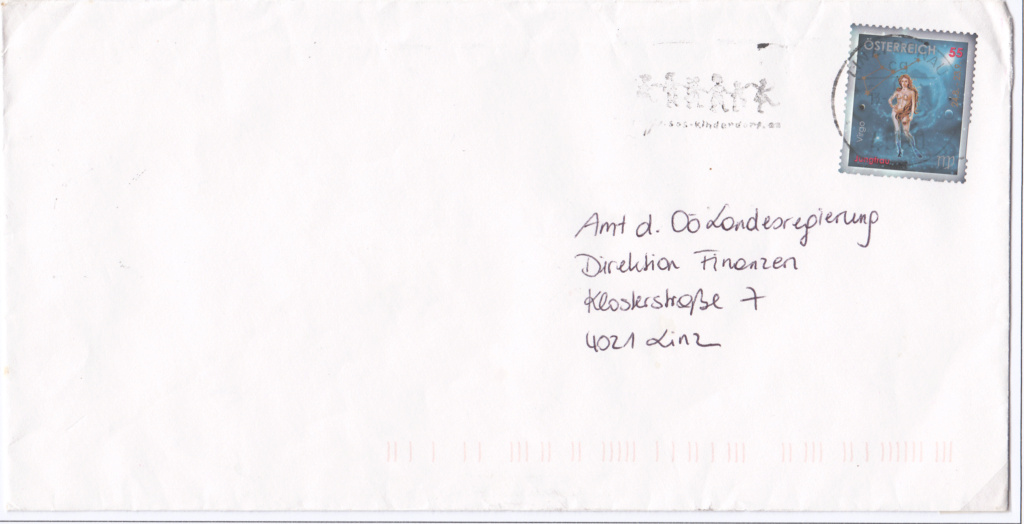 ÖSTERREICH 55
Virgo
Jungfrau
sos-kinderdorf.
Amt d. OÖ Landesregierung
Direktion Finanzen
Klosterstraße 7
4021 Linz